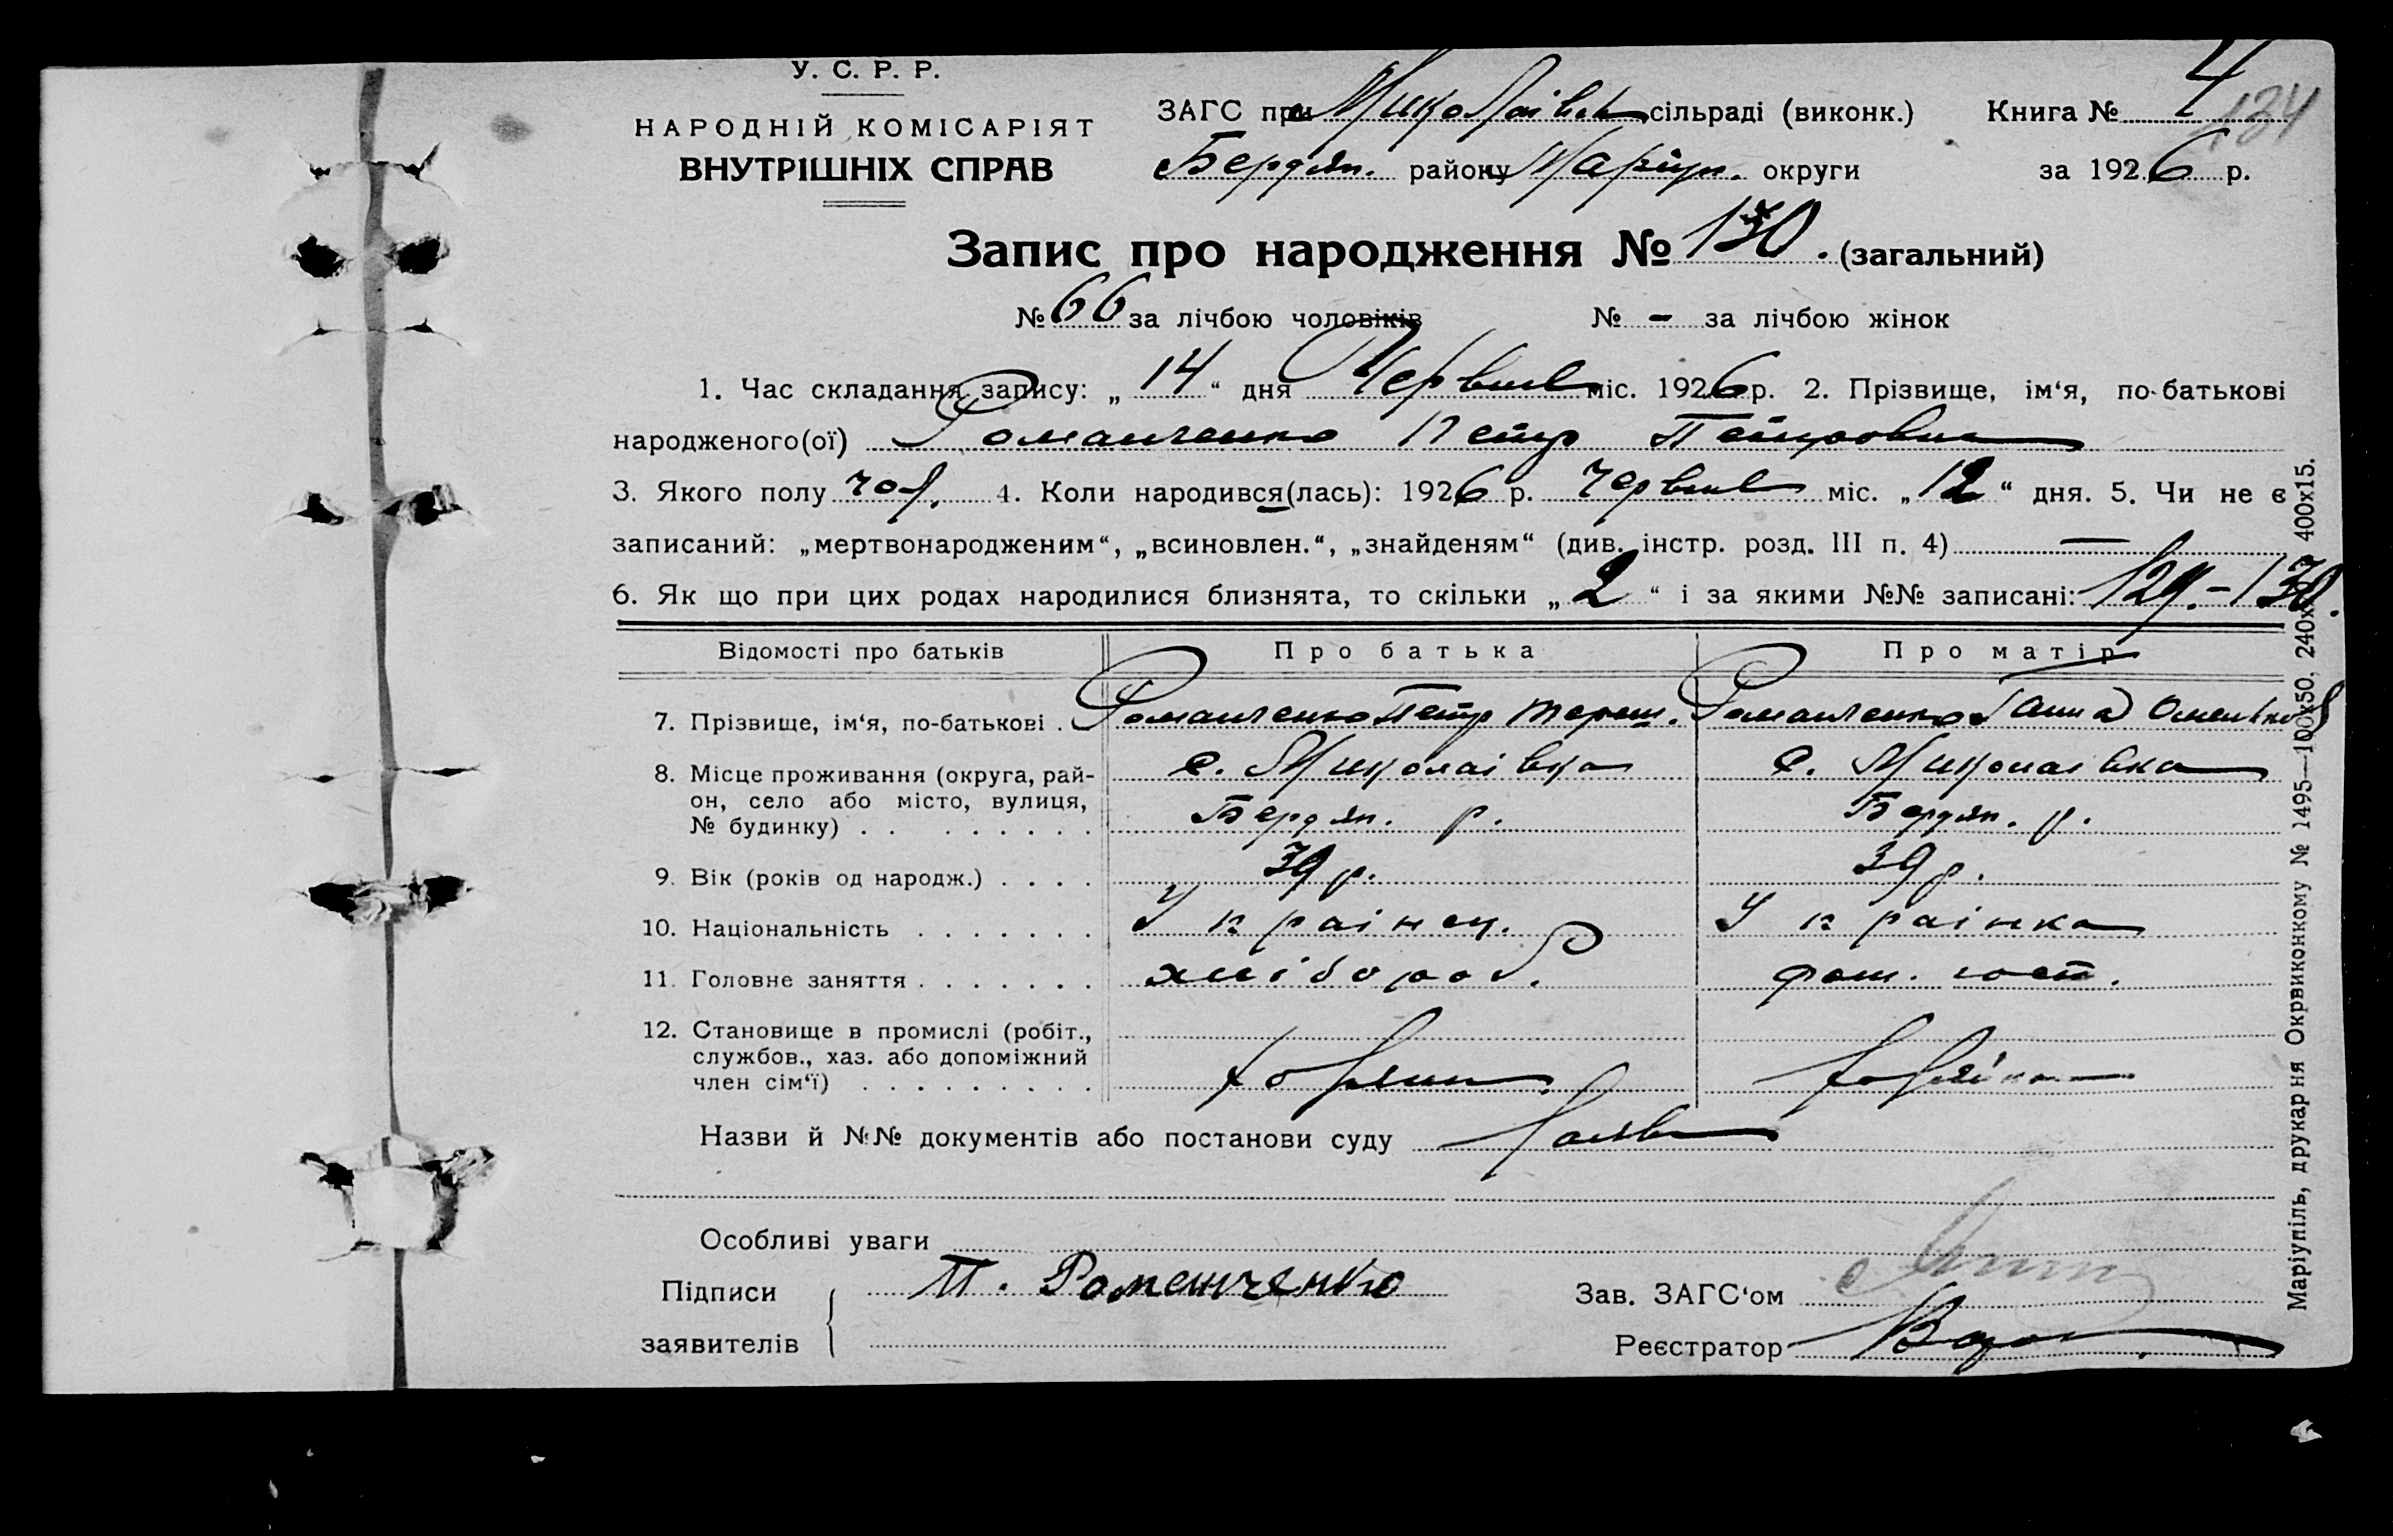 У. С. Р. Р.
НАРОДНІЙ КОМІСАРІЯТ
ВНУТРІШНІХ СПРАВ
ЗАГС при Миколаівск сільраді (виконк.)
Бердян. району Маріуп. округи
Книга № 4
134
за 1926 р.
Запис про народження № 130. (загальний)
№ 66 за лічбою чоловіків № - за лічбою жінок
1. Час складання запису: „ 14 “ дня Червня міс. 1926 р. 2. Прізвище, ім‘я, по-батькові
народженого(ої) Романченко Петр Петрович
3. Якого полу чол. 4. Коли народився(лась): 1926 р. Червня міс. „ 12 “ дня. 5. Чи не є
записаний: „мертвонародженим“, „всиновлен.“, „знайденям“ (див. інстр. розд. III п. 4) —
6. Як що при цих родах народилися близнята, то скільки „ 2 “ і за якими №№ записані: 129.-130.
Відомості про батьків Про батька Про матір
7. Прізвище, ім‘я, по-батькові . Романченко Петр Тереш. Романченко Ганна Омельков
8. Місце проживання (округа, рай- с. Миколаівка с. Миколаівка
он, село або місто, вулиця,
№ будинку) . . . . . . . . . Бердян. р. Бердян. р.
9. Вік (років од народж.) . . . . 39 р. 39 р.
10. Національність . . . . . . . Украінец. Украінка
11. Головне заняття . . . . . . . хлібороб. дом. госп.
12. Становище в промислі (робіт.,
службов., хаз. або допоміжний
член сім‘ї) . . . . . . . . .
Назви й №№ документів або постанови суду
Особливі уваги
Підписи П. Романченко Зав. ЗАГС‘ом
заявителів Реєстратор
Маріупіль, друкарня Окрвиконкому № 1495—100х50. 240х 400х15.